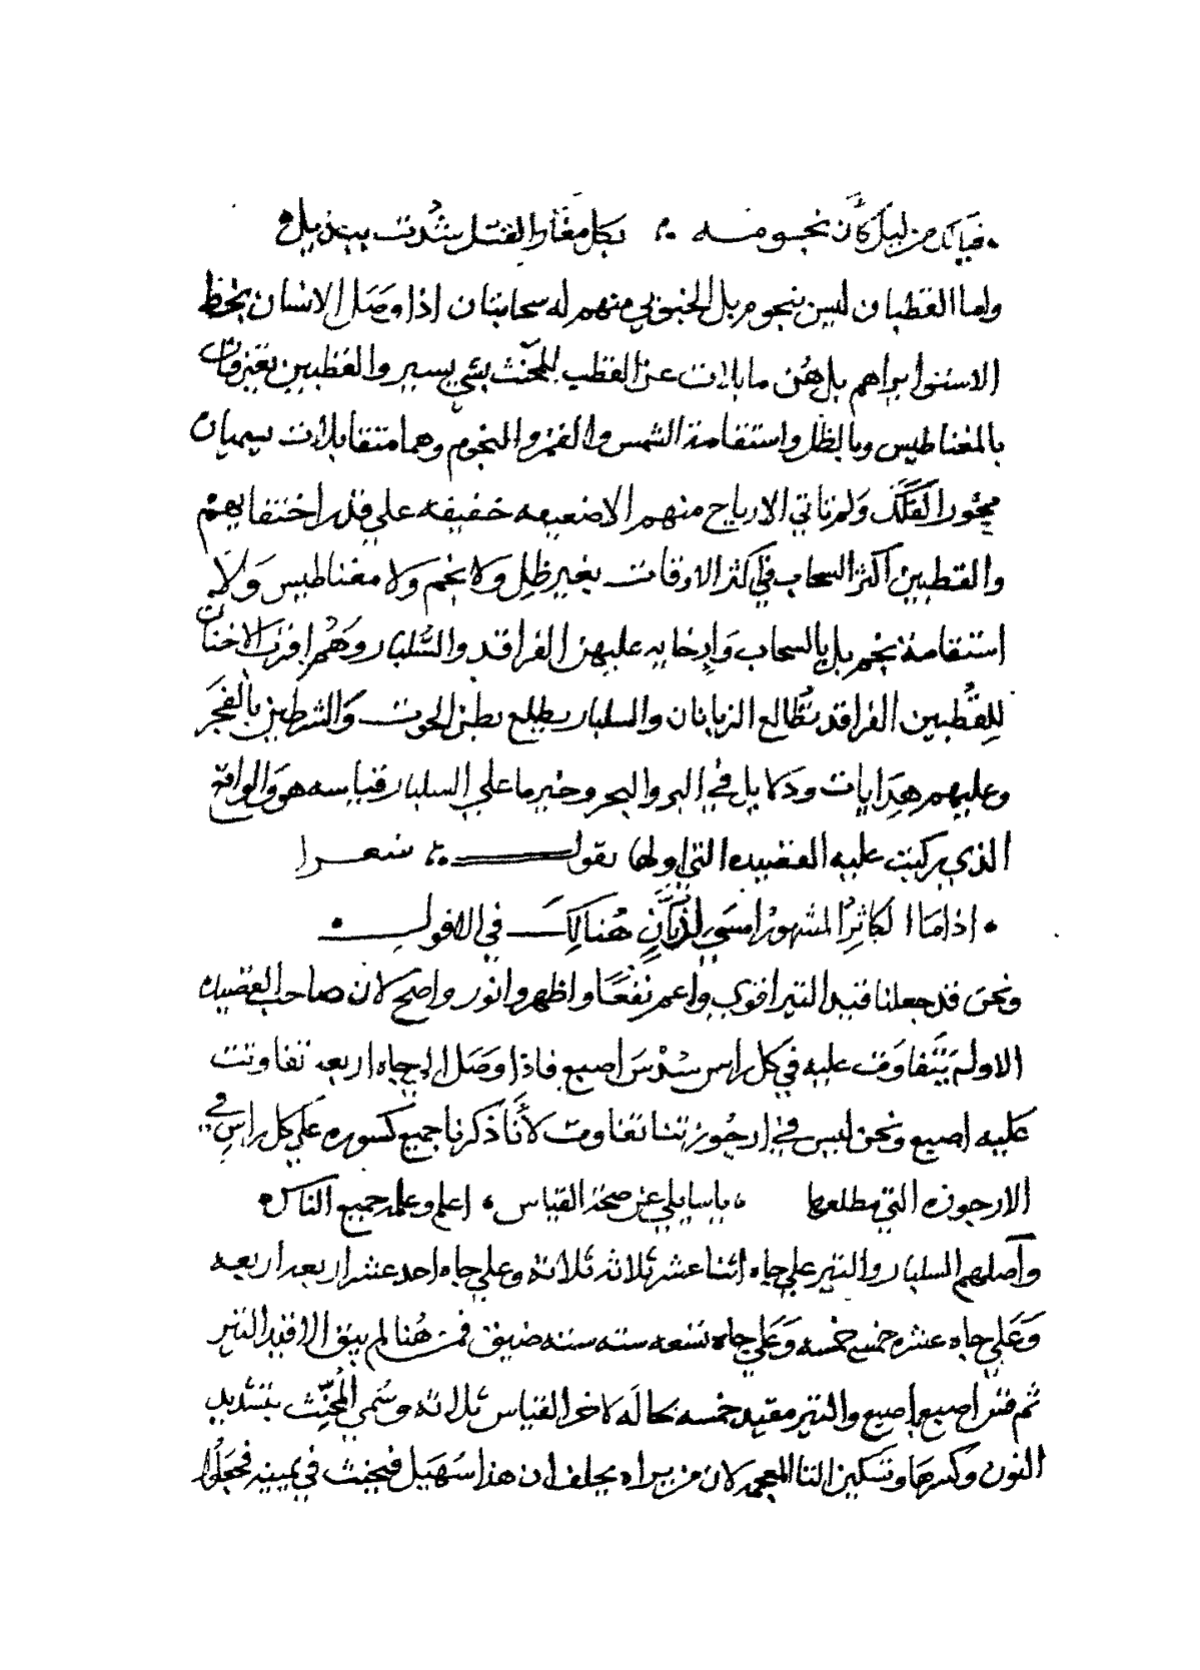 فيالك من ليل كأن نجومه ∴ بكل مغار الفتل شدت بيذبل
واما القطبان ليس بنجوم بل الجنوبي منهم له سحابتان اذا وصل الانسان بخط
الاستوا يراهم بل هن مايلات عن القطب للمحنث بشي يسير والقطبين تعتزفان
بالمغناطيس وبالظل واستقامة الشمس والقمر والنجوم وهما متقابلات يسميان
محور الفلك ولم تاتي الارياح منهم الا ضعيفه خفيفه علي قدر اختفايهم
والقطبين اكثر السحاب في اكثر الاوقات بغير ظل ولا نجم ولا مغناطيس ولا
استقامة نجم بل بالسحاب وإرخايه عليهن الفراقد والسلبار وهم اقرب الاخنان
للقطبين الفراقد تطالع الزبانان والسلبار يطلع بطن الحوت والشرطين بالفجر
وعليهم هدايات ودلايل في البر والبحر وخير ما علي السلبار قياسه هو والواقع
الذي ركبت عليه القصيده التي اولها يقول ∴ شعرا
• اذا ما الكاثر المشهور امسي لذبان هنالك في الافول •
ونحن قد جعلنا قيد التير اقوي واعم نفعا واظهر وانور واصح لان صاحب القصيده
الاولم يتفاوت عليه في كل راس سدس اصبع فاذا وصل الي جاه اربعه تفاوتت
عليه اصبع ونحن ليس في ارجوزتنا تفاوت لأنا ذكرنا جميع كسوره علي كل راس في
الارجوزه التي مطلعها • يا سايلي عن صحة القياس • اعلم وعلم جميع الناس •
وأصلهم السلبار والتير علي جاه اثنا عشر ثلاثه ثلاثة وعلي جاه احد عشر اربعه اربعه
وعلي جاه عشره خمس خمسه وعلي جاه تسعه سته سته ضيق فمن هنا لم يبق الا قيد التير
ثم قس اصبع باصبع والتير مقيد خمسه بحاله لاخر القياس ثلاثه وسمي المحنث بتشديد
النون وكسرها وتسكين الثا المعجمه لان من يراه يحلف ان هذا سهيل فيحنث في يمينه فجعلوا